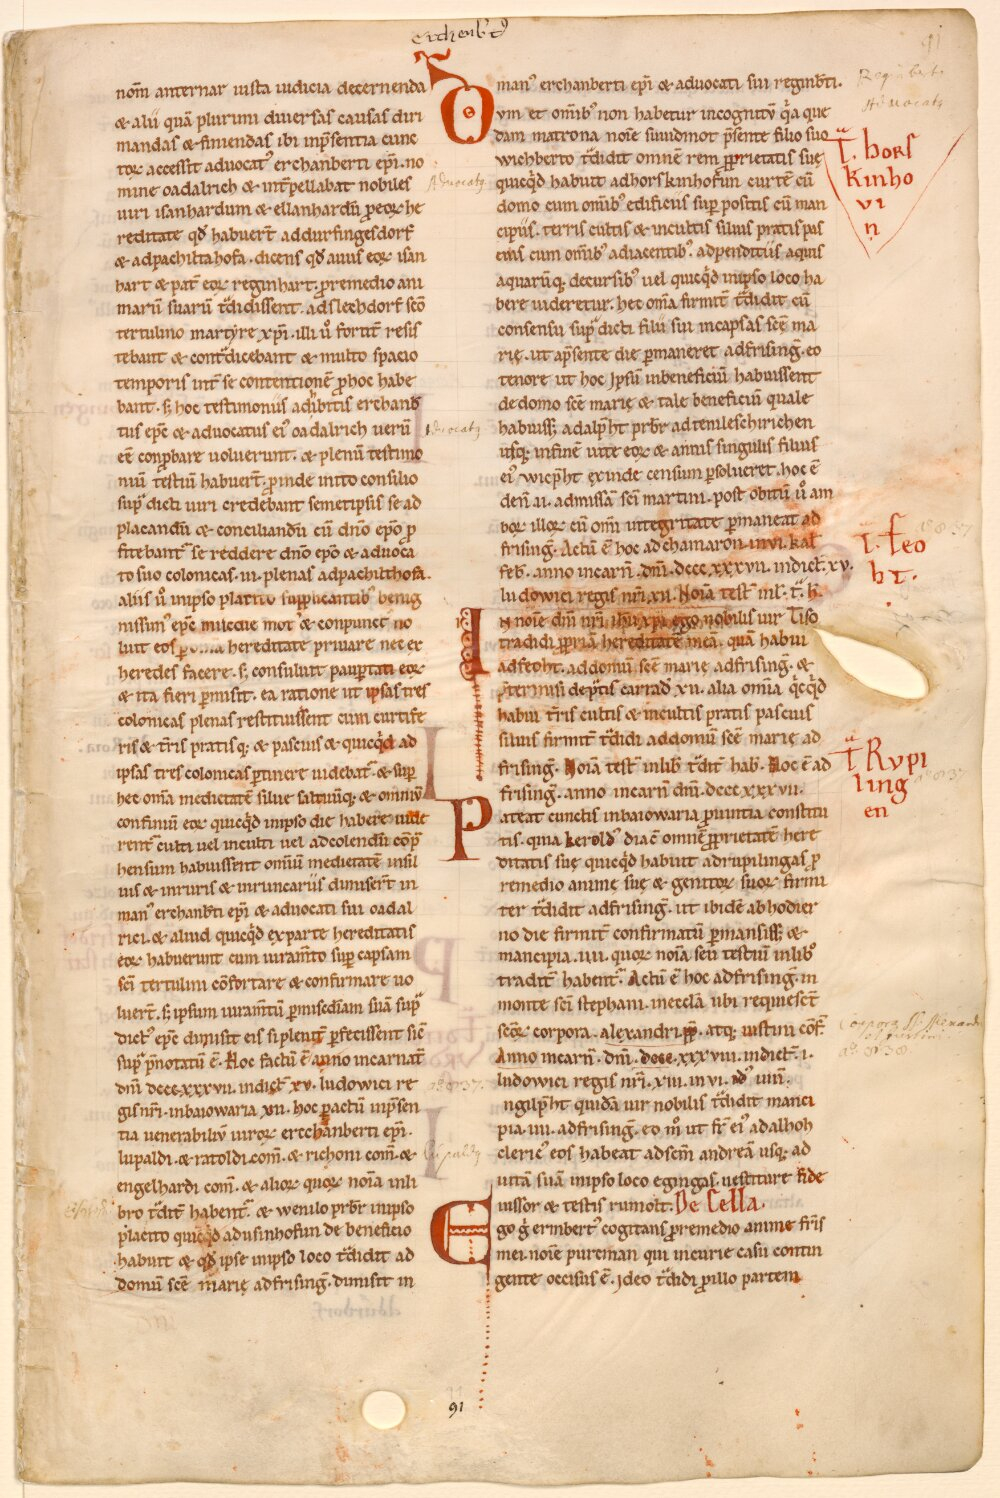 Erchenb̄t⁹
91
nom̄ anternar iusta iudicia decernenda
& alii quā plurimi diuersas causas diri
mandas & finiendas ibi inp̄sentia cunc
toꝝ accessit aduocat⁹ erchanberti ep̄i. no
mine oadalrich & int̄pellabat nobiles
uiri isanhardum & ellanhardū ꝓeoꝝ he
reditate qd̄ habuer̄t addurfingesdorf
& adpachiltahofa. dicens qd̄ auus eoꝝ isan
hart & pat̄ eoꝝ reginhart. ꝓremedio ani
marū suarū t̄didissent. adslechdorf sc̄o
tertulino martyre xp̄i. illi ů fortit̄ resis
tebant & cont̄dicebant & multo spacio
temporis int̄ se contentionē ꝓhoc habe
bant. s; hoc testimoniis adhibitis erchanb̄
tus ep̄c & aduocatus ei⁹ oadalrich uerū
eē conꝓbare uoluerunt. & plenū testimo
niū testiū habuer̄t. ꝓinde inito consilio
sup̄ dicti uiri credebant semetipsis se ad
placandū & conciliandū cū dn̄o ep̄o ꝓ
fitebant̄ se reddere dn̄o ep̄o & aduoca
to suo colonicas. iii. plenas adpachilthofa.
aliis ů inipso placito supplicantib⁹ benig
nissim⁹ ep̄c mot⁹ & conpunct⁹ no
luit eos hereditate priuare nec ex
heredes facere. s; consuluit pauꝑtati eoꝝ
& ita fieri ꝑmisit. ea ratione ut ipsas tres
colonicas plenas restituissent cum curtife
ris & t̄ris pratisq; & pascuis & quicq̄d ad
ipsas tres colonicas ꝑtinere uidebat̄ & sup̄
hec om̄a medietatē silue saltuūq; & omniū
confiniū eoꝝ quicq̄d inipso die habere uide
rent̄ culti uel inculti uel adcolendū cōp̄
hensum habuissent omniū medietatē insil
uis & inruris & inruncariis dimiser̄t in
man⁹ erchanb̄ti ep̄i & aduocati sui oadal
rici. & aliud quicq̄d exparte hereditatis
eoꝝ habuerunt cum iuram̄to sup̄ capsam
sc̄i tertulini cōfortare & confirmare uo
luer̄t. s; ipsum iuram̄tū ꝑmisediam suā sup̄
dict⁹ ep̄c dimisit eis si plenit̄ ꝑfecissent sic̄
sup̄ p̄notatū ē. Hoc factū ē anno incarnat̄
dn̄i dccc.xxxvii. indict̄ xv. ludowici re
gis nr̄i. inbaiowaria xii. hoc pactū inp̄sen
tia uenerabiliū uiroꝝ erchanberti ep̄i.
lupaldi. & ratoldi. com̄. & richoni com̄. &
engelhardi com̄. & alioꝝ quoꝝ noīa inli
bro t̄dit̄ habent̄. & wenilo prb̄r inipso
placito quicq̄d adusinhofun de beneficio
habuit & qd̄ ipse inipso loco t̄didit ad
domū sc̄ę marię adfrising̃. dimisit in
Aduocat⁹
Aduocat⁹
aͦ. 837.
Lupald⁹
man⁹ erchanberti ep̄i & aduocati sui reginb̄ti.
Ovm et om̄ib⁹ non habetur incognitū q̄a que
dam matrona noīe suuidmot p̄sente filio suo
wichberto t̄didit omnē rem ꝓprietatis suę
quicq̄d habuit adhorskinhofun curtē cū
domo cum om̄ib⁹ edificiis sup̄ positis cū man
cipiis. terris cultis & incultis siluis pratis pas
cuis cum om̄ib⁹ adiacentib⁹. adpendiciis aquis
aquarūq; decursib⁹ uel quicq̄d inipso loco ha
bere uideretur. hec om̄a firmit̄ t̄didit cū
consensu sup̄ dicti filii sui incapsas sc̄ę ma
rię. ut ap̄sente die ꝑmaneret adfrising̃. eo
tenore ut hoc ipsū inbeneficiū habuissent
de domo sc̄ę marię & tale beneficiū quale
habuiss; adalp̄ht prb̄r adtenileschirichen
usq; infinē uite eoꝝ & annis singulis filius
ei⁹ wicp̄ht exinde censum ꝑsolueret. hoc ē
den̄. vi. admissā sc̄i martini. post obitū ů am
boꝝ illoꝝ cū om̄i integritate ꝑmaneat ad
frising̃. Actū ē hoc adchamaron invi. kal̄
feb̄. anno incarn̄. dn̄i. dccc.xxxvii. indict̄. xv.
ludowici regis nr̄i. xii. Noīa test̄ inl̄. t̄. h̄.
In noīe dn̄i nr̄i ih̄u xp̄i ego nobilis uir Tiso
tradidi ꝓpriā hereditatē meā. quā habui
adfeoht. addomū sc̄ę marię adfrising̃. &
p̄termisi de p̄tis carrad̄ xii. alia om̄ia q̄cq̄d
habui t̄ris cultis & incultis pratis pascuis
siluis firmit̄ t̄didi addomū sc̄ę marię ad
frising̃. Noīa test̄ inlib̄ t̄dit̄ hab̄. Hoc ē ad
frising̃. anno incarn̄ dn̄i. dccc.xxxvii.
Pateat cunctis inbaiowaria ꝓuintia constitu
tis. quia kerold⁹ diac̄ omnē ꝓprietatē here
ditatis suę quicq̄d habuit adrupilingas ꝓ
remedio animę suę & genitoꝝ suoꝝ firmi
ter t̄didit adfrising̃. ut ibidē ab hodier
no die firmit̄ confirmatū ꝑmansiss; &
mancipia. iiii. quoꝝ noīa seu testiū inlib̄
tradit̄ habent̄. Actū ē hoc adfrising̃. in
monte sc̄i stephani. inecclā ubi requiesc̄t
sc̄oꝝ corpora. alexandri pp̄. atq; iustini cōf̄.
Anno incarn̄. dn̄i. dccc.xxxviii. indict̄. i.
ludowici regis nr̄i. xiii. in vi. id⁹ iun̄.
ngilp̄ht quidā uir nobilis t̄didit manci
pia. iiii. adfrising̃. eo m̊ ut fr̄ ei⁹ adalhoh
cleric⁹ eos habeat adsc̄m andreā usq; ad
uitā suā inipso loco egingas. uestiture fide
iussor & testis rumolt. De Cella.
Ego ḡ ermbert⁹ cogitans ꝓremedio anime fr̄is
mei. noīe pureman qui incurie casu contin
gente occisus ē. jdeo t̄didi ꝓillo partem
Reginbert.
Aduocat⁹
T̄. hors
kinho
vi
n
T. feo
ht.
aͦ. 837
T̄ Rvpi
ling
en
aͦ. 837
Corpora SS. Alexandri
et Iustini
aͦ. 838.
91